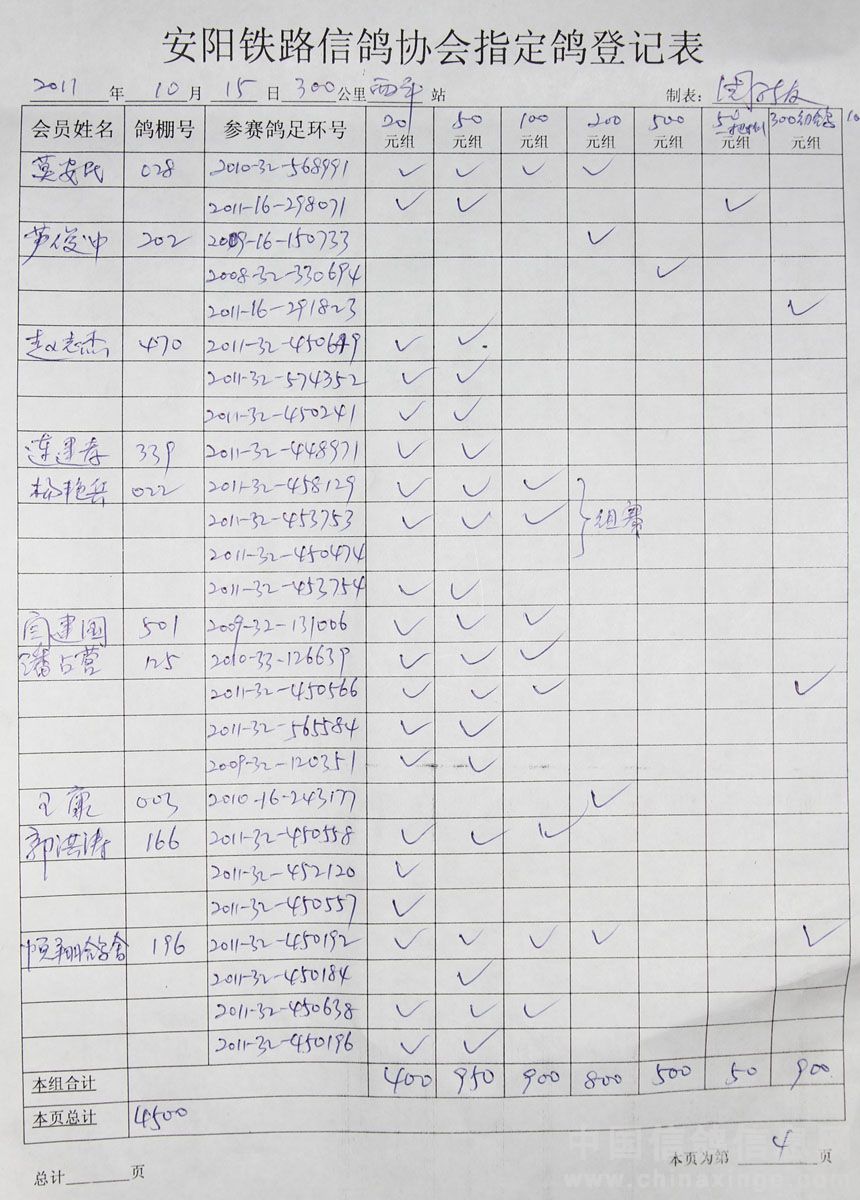 安阳铁路信鸽协会指定鸽登记表
2011 年 10 月 15 日 300 公里 西平 站 制表:
会员姓名 鸽棚号 参赛鸽足环号 20元组 50元组 100元组 200元组 500元组 50 元组 300幼鸽元组 10
莫安民 028 2010-32-568991 ✓ ✓ ✓ ✓
2011-16-298071 ✓ ✓ ✓
芦俊中 202 2009-16-150733 ✓
2008-32-330694 ✓
2011-16-291823 ✓
赵志杰 470 2011-32-450649 ✓ ✓
2011-32-574352 ✓ ✓
2011-32-450241 ✓ ✓
连建春 339 2011-32-448971 ✓ ✓
杨艳兵 022 2011-32-458129 ✓ ✓ ✓
2011-32-453753 ✓ ✓ ✓ } 组赛
2011-32-450474
2011-32-453754 ✓ ✓
闫建国 501 2009-32-131006 ✓ ✓ ✓
潘占营 125 2010-33-126639 ✓ ✓ ✓
2011-32-450566 ✓ ✓ ✓ ✓
2011-32-565584 ✓ ✓
2009-32-120351 ✓ ✓
王献 003 2010-16-243177 ✓
郭洪涛 166 2011-32-450558 ✓ ✓ ✓
2011-32-452120 ✓
2011-32-450557 ✓
恒翔鸽舍 196 2011-32-450192 ✓ ✓ ✓ ✓ ✓
2011-32-450184 ✓
2011-32-450638 ✓ ✓ ✓
2011-32-450196 ✓ ✓
本组合计 400 950 900 800 500 50 900
本页总计 4500
总计 页 本页为第 4 页
中国信鸽信息网
www.chinaxinge.com